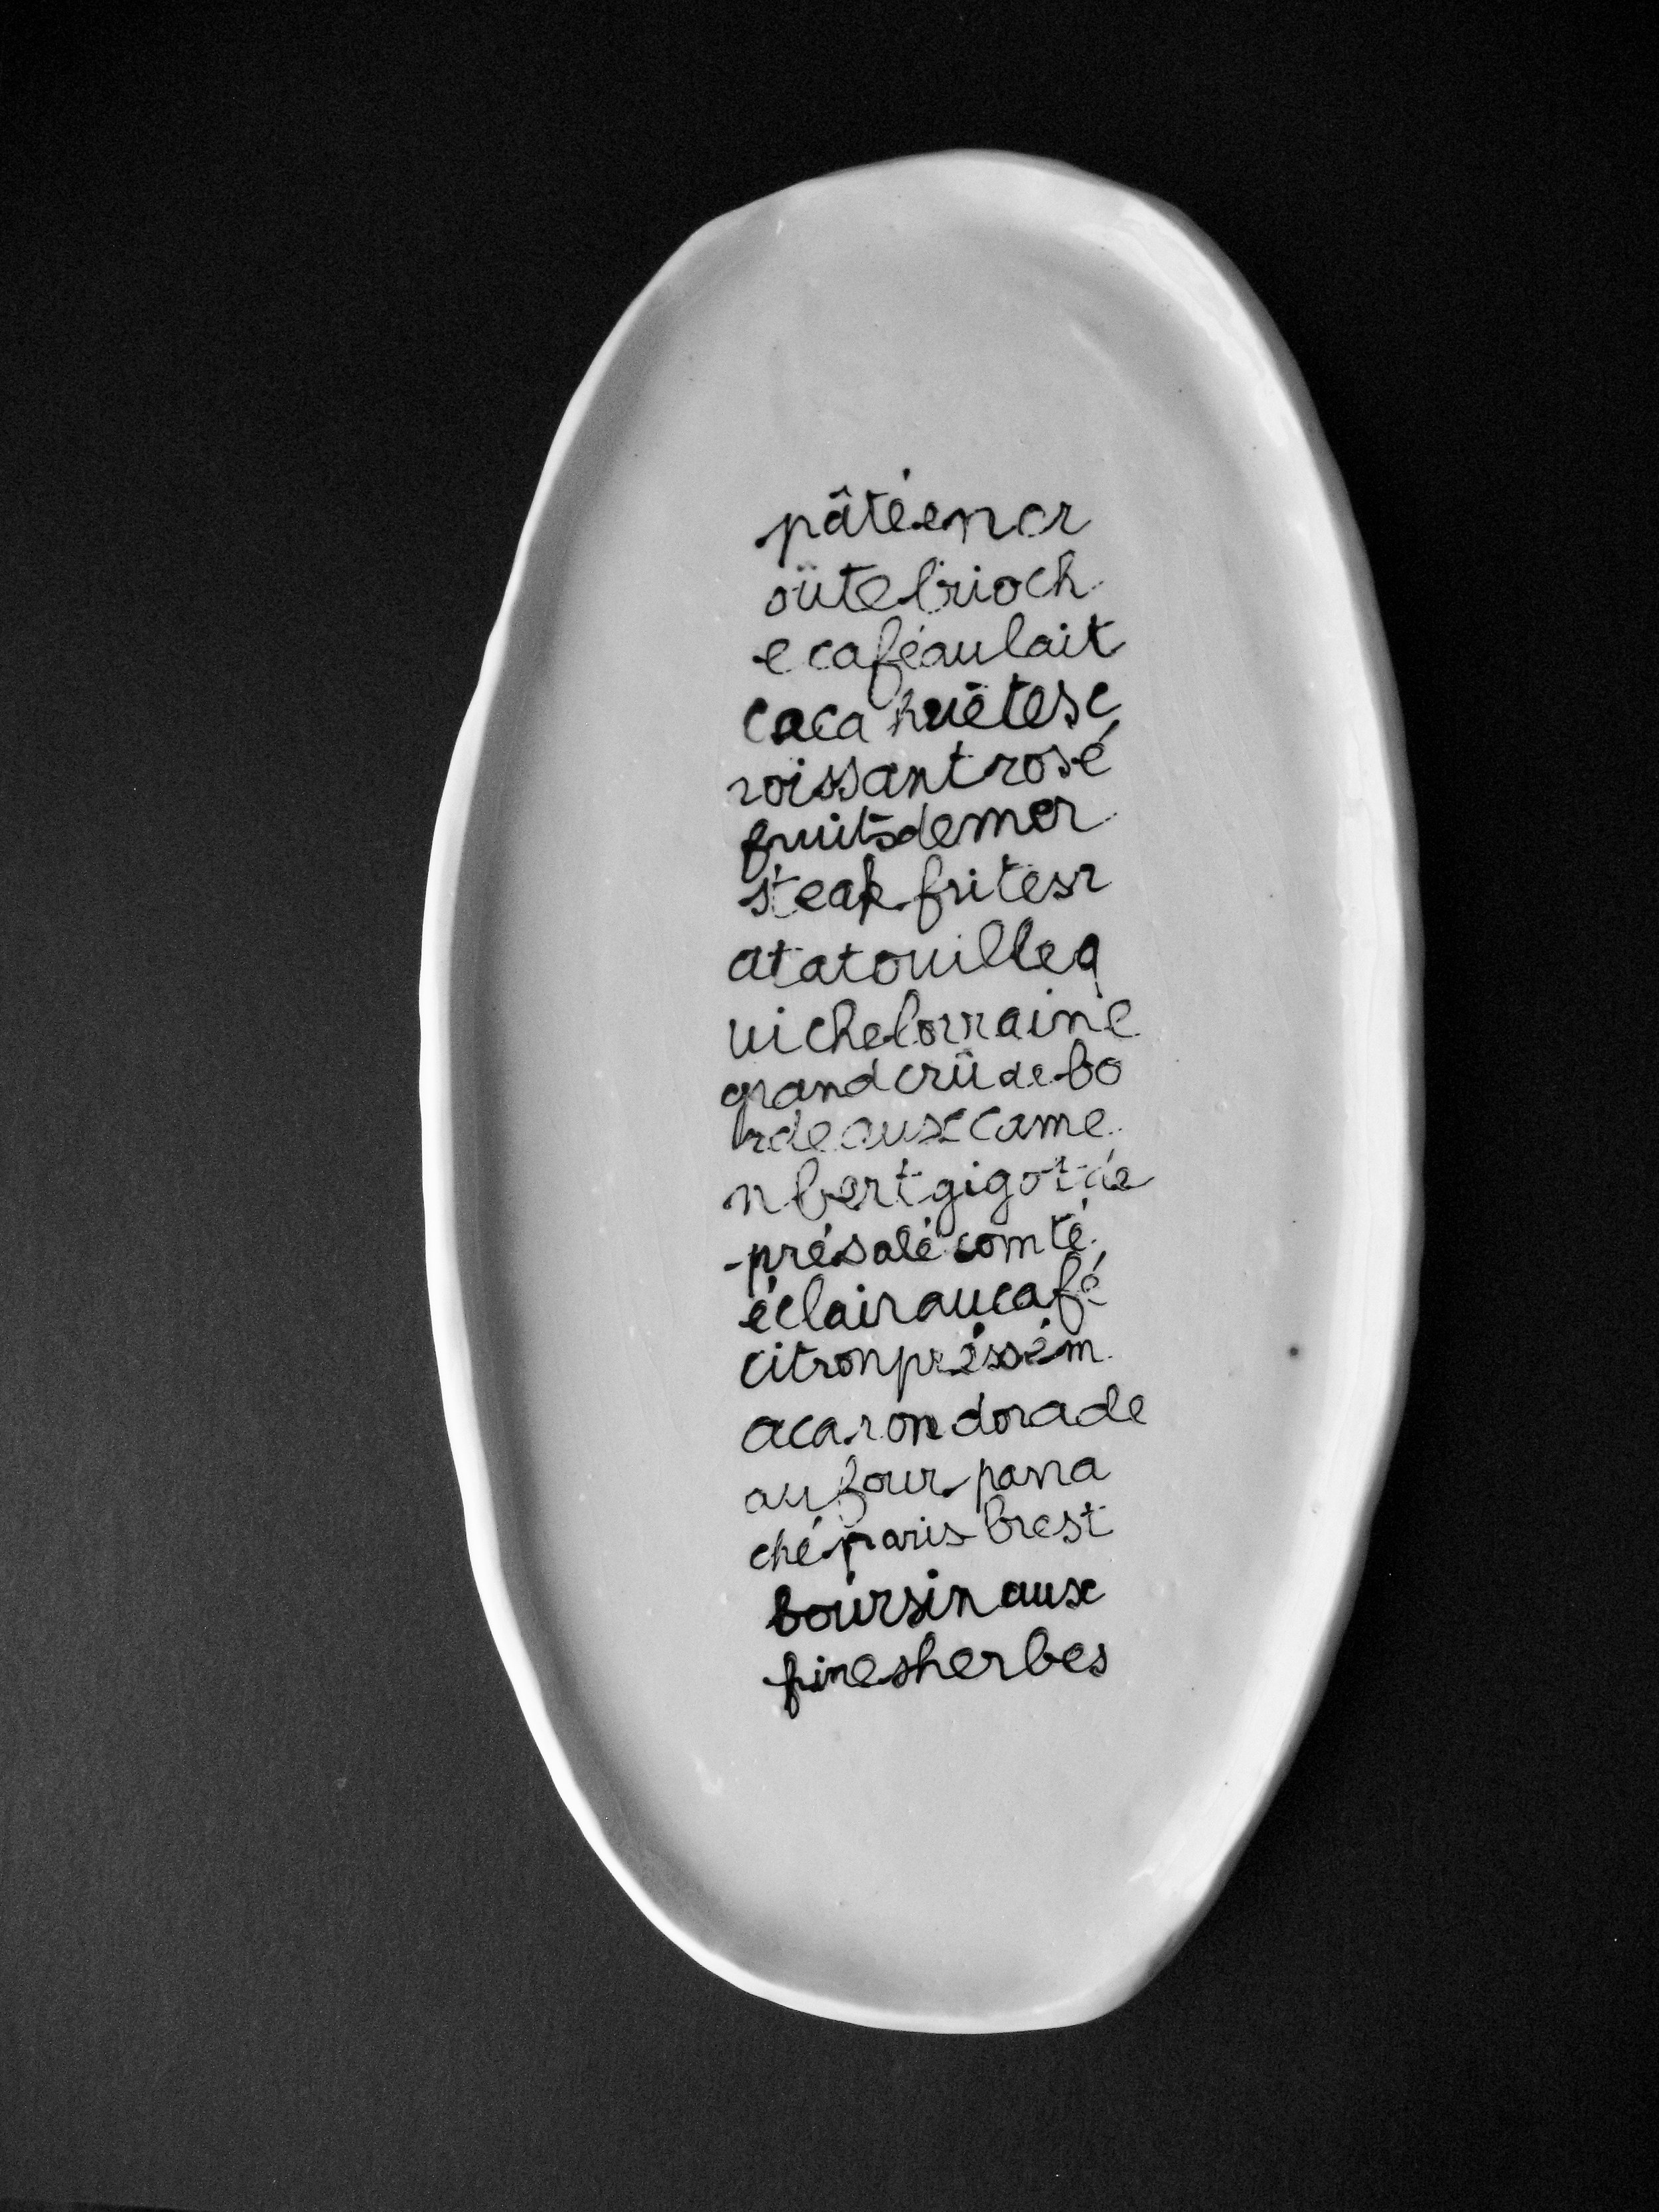 pâtéencr
oûtebrioch
ecaféaulait
cacahuètesc
roissantrosé
fruitsdemer
steakfritesr
atatouilleq
uichelorraine
grandcrûdebo
rdeauxcame
nbertgigotde
présalécomté
éclairaucafé
citronpréssém
acarondorade
aufourpana
chéparisbrest
boursinaux
finesherbes